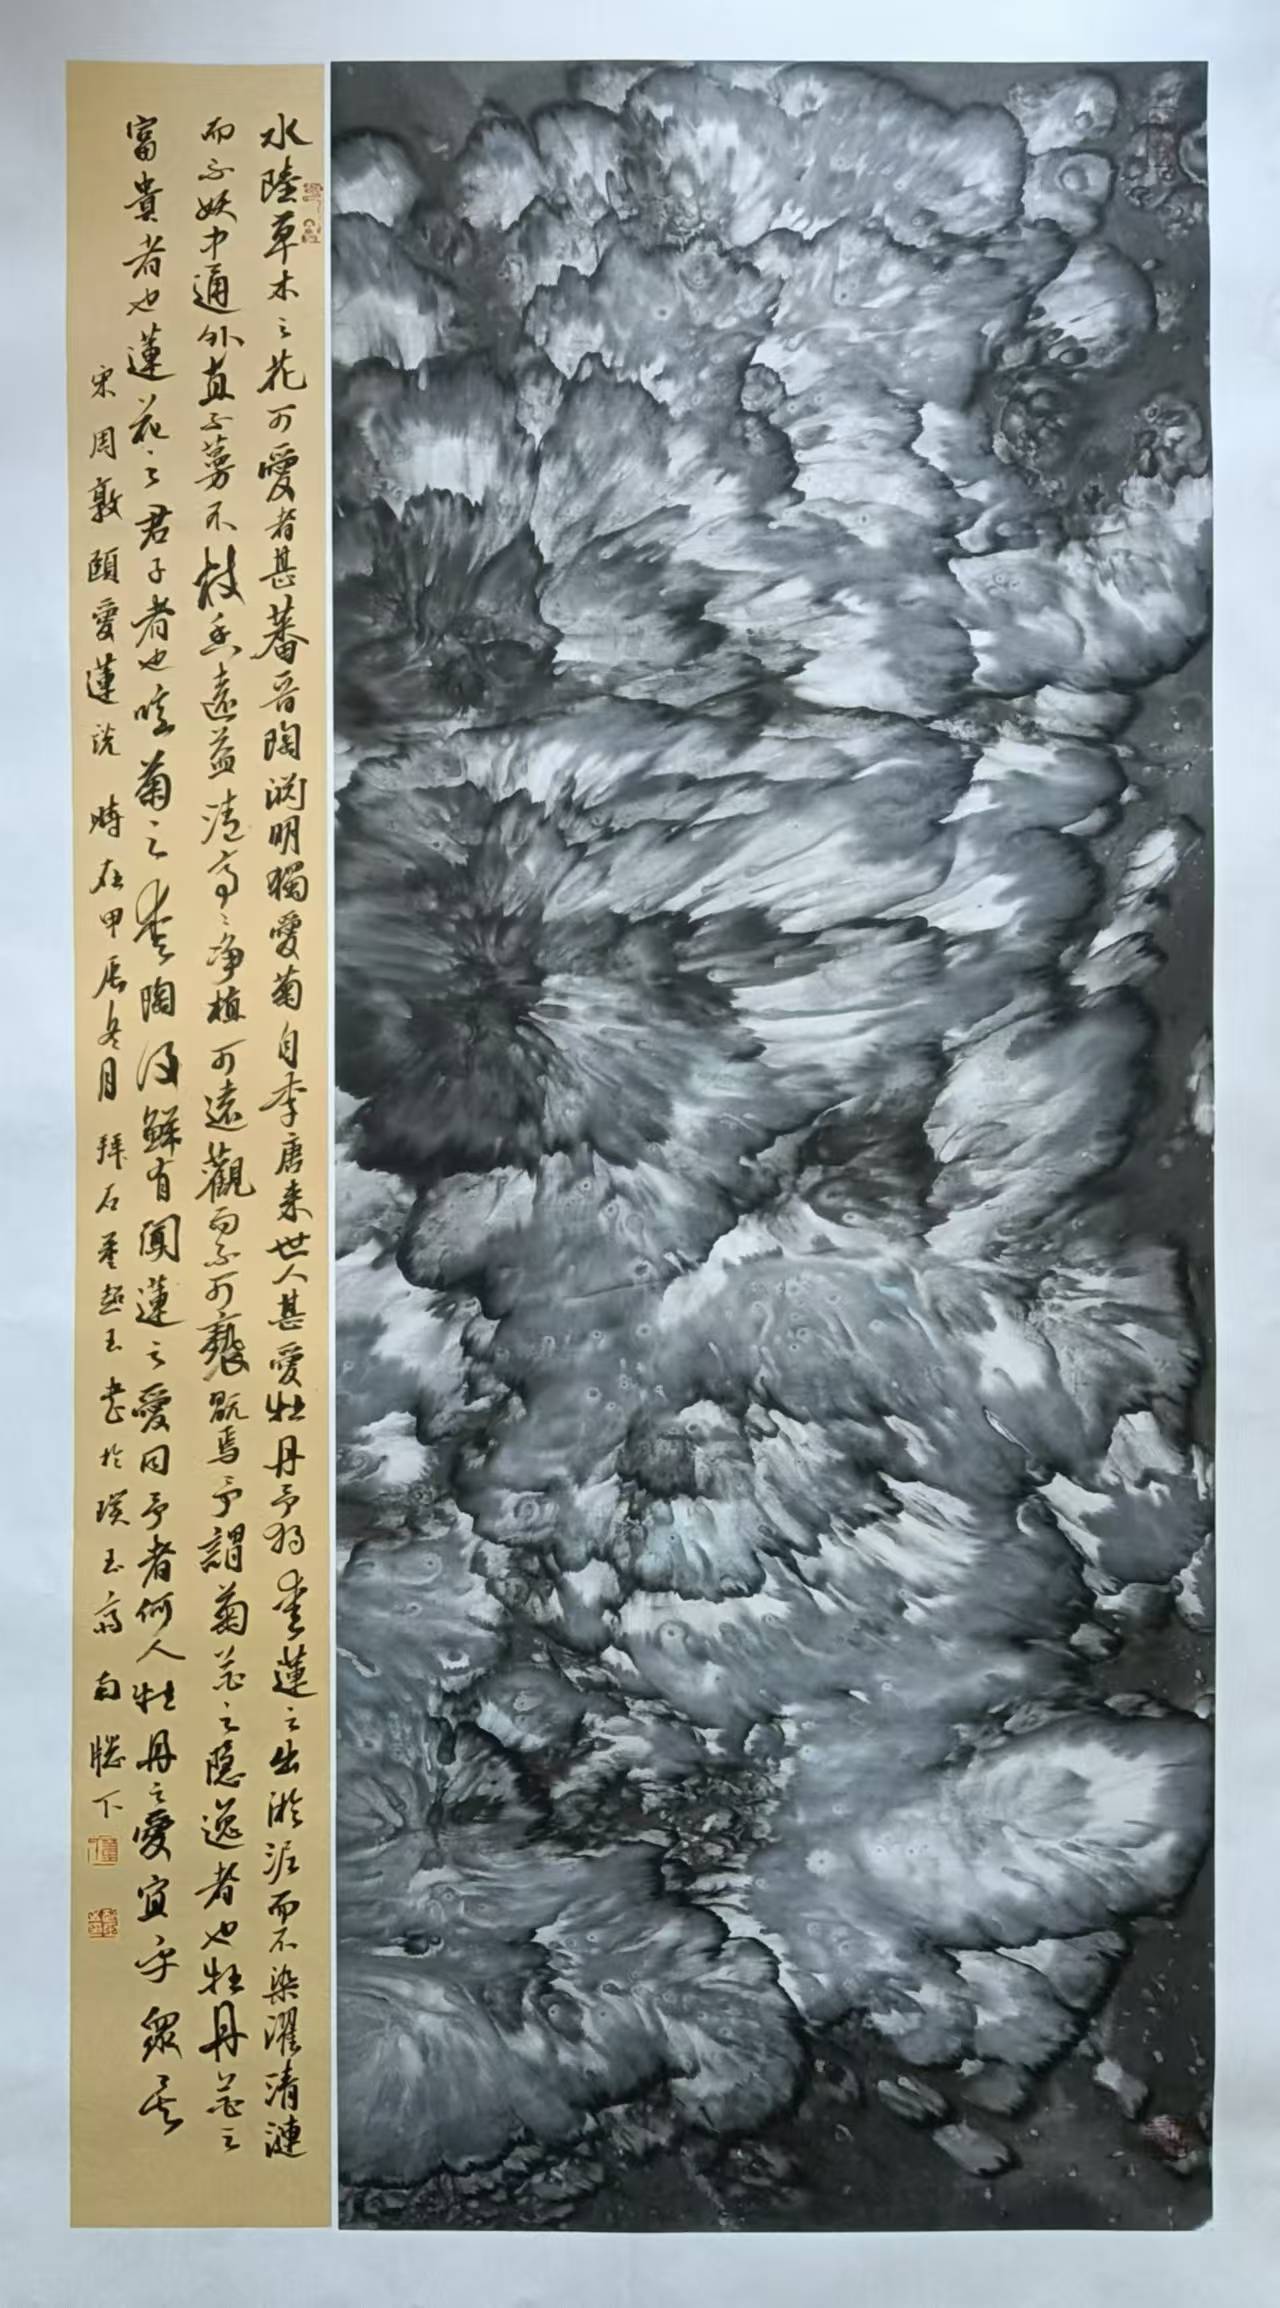 水陸草木之花可愛者甚蕃晋陶淵明獨愛菊自李唐来世人甚愛牡丹予獨愛蓮之出淤泥而不染濯清漣
而不妖中通外直不蔓不枝香遠益清亭〻净植可遠觀而不可褻翫焉予謂菊花之隠逸者也牡丹花之
富貴者也蓮花之君子者也噫菊之愛陶後鮮有聞蓮之愛同予者何人牡丹之愛宜乎衆矣
宋周敦頤愛蓮説 時在甲辰冬月 拜石 超玉書於璞玉齋南牕下